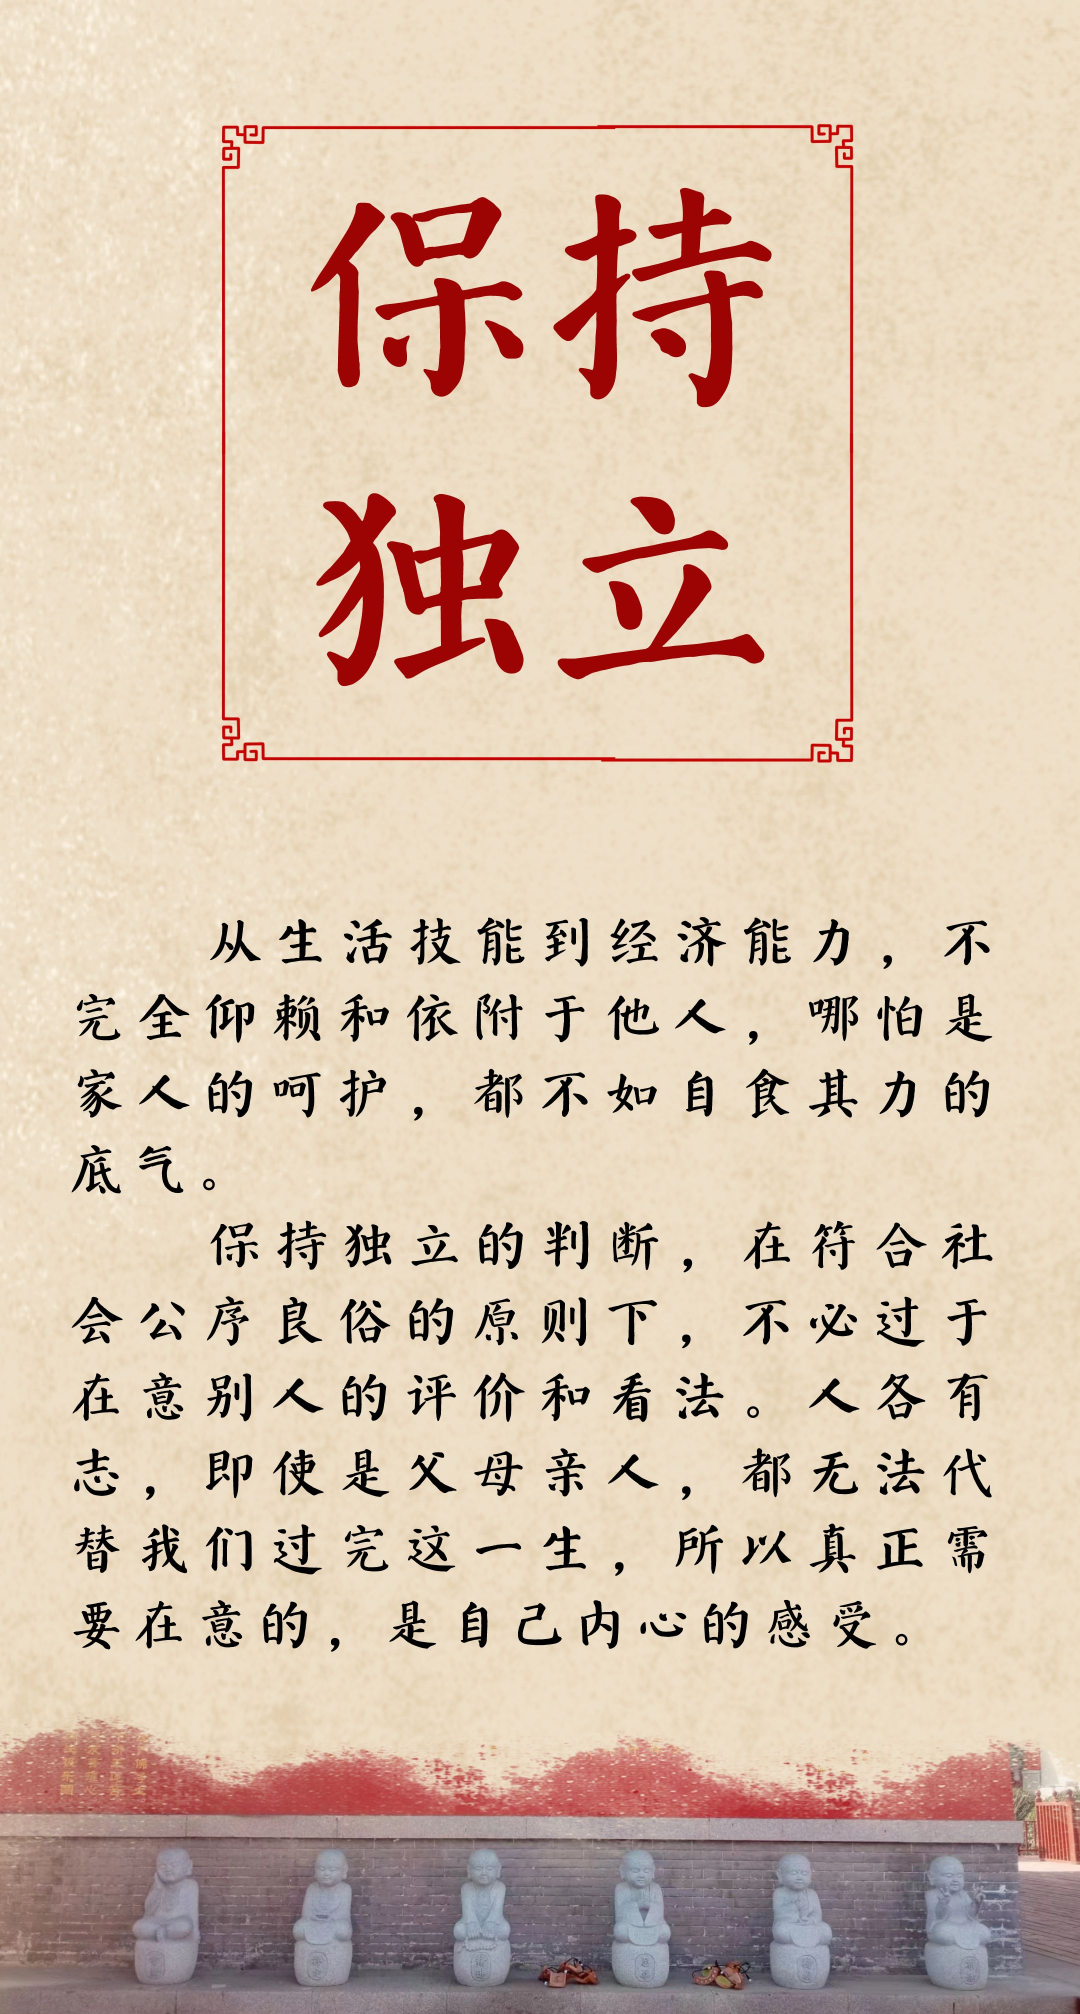 保持
独立
从生活技能到经济能力，不
完全仰赖和依附于他人，哪怕是
家人的呵护，都不如自食其力的
底气。
保持独立的判断，在符合社
会公序良俗的原则下，不必过于
在意别人的评价和看法。人各有
志，即使是父母亲人，都无法代
替我们过完这一生，所以真正需
要在意的，是自己内心的感受。